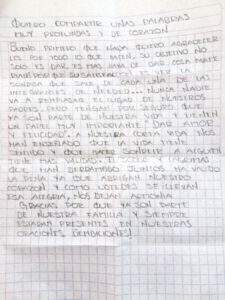 Quiero compartir unas palabras
muy profundas y de corazón
Bueno primero que nada quiero agradecer
les por todo lo que hacen, su objetivo no
solo es dar, es más allá de dar cosa mate
riales por que su satisfacción es ver la
sonrisa que sale de cada una de las
integrantes de needed... nunca nadie
va a remplazar felicidad de nuestros
padres pero tengan por seguro que
ya son parte de nuestra vida y tienen
un parte muy importante dar amor
y felicidad. A nuestra corta vida nos
han enseñado que la vida tiene
sentido y que hacer sonreír a alguien
tiene más validad. Ti y lágrimas
que han derramado juntos ha valido
la pena ya que abrigan nuestro
corazón y como ustedes se llevan
esa alegría, nos dejan
Gracias por que ya son parte
de nuestra familia y siempre
estaran presentes en nuestras
oraciones. Bendiciones!